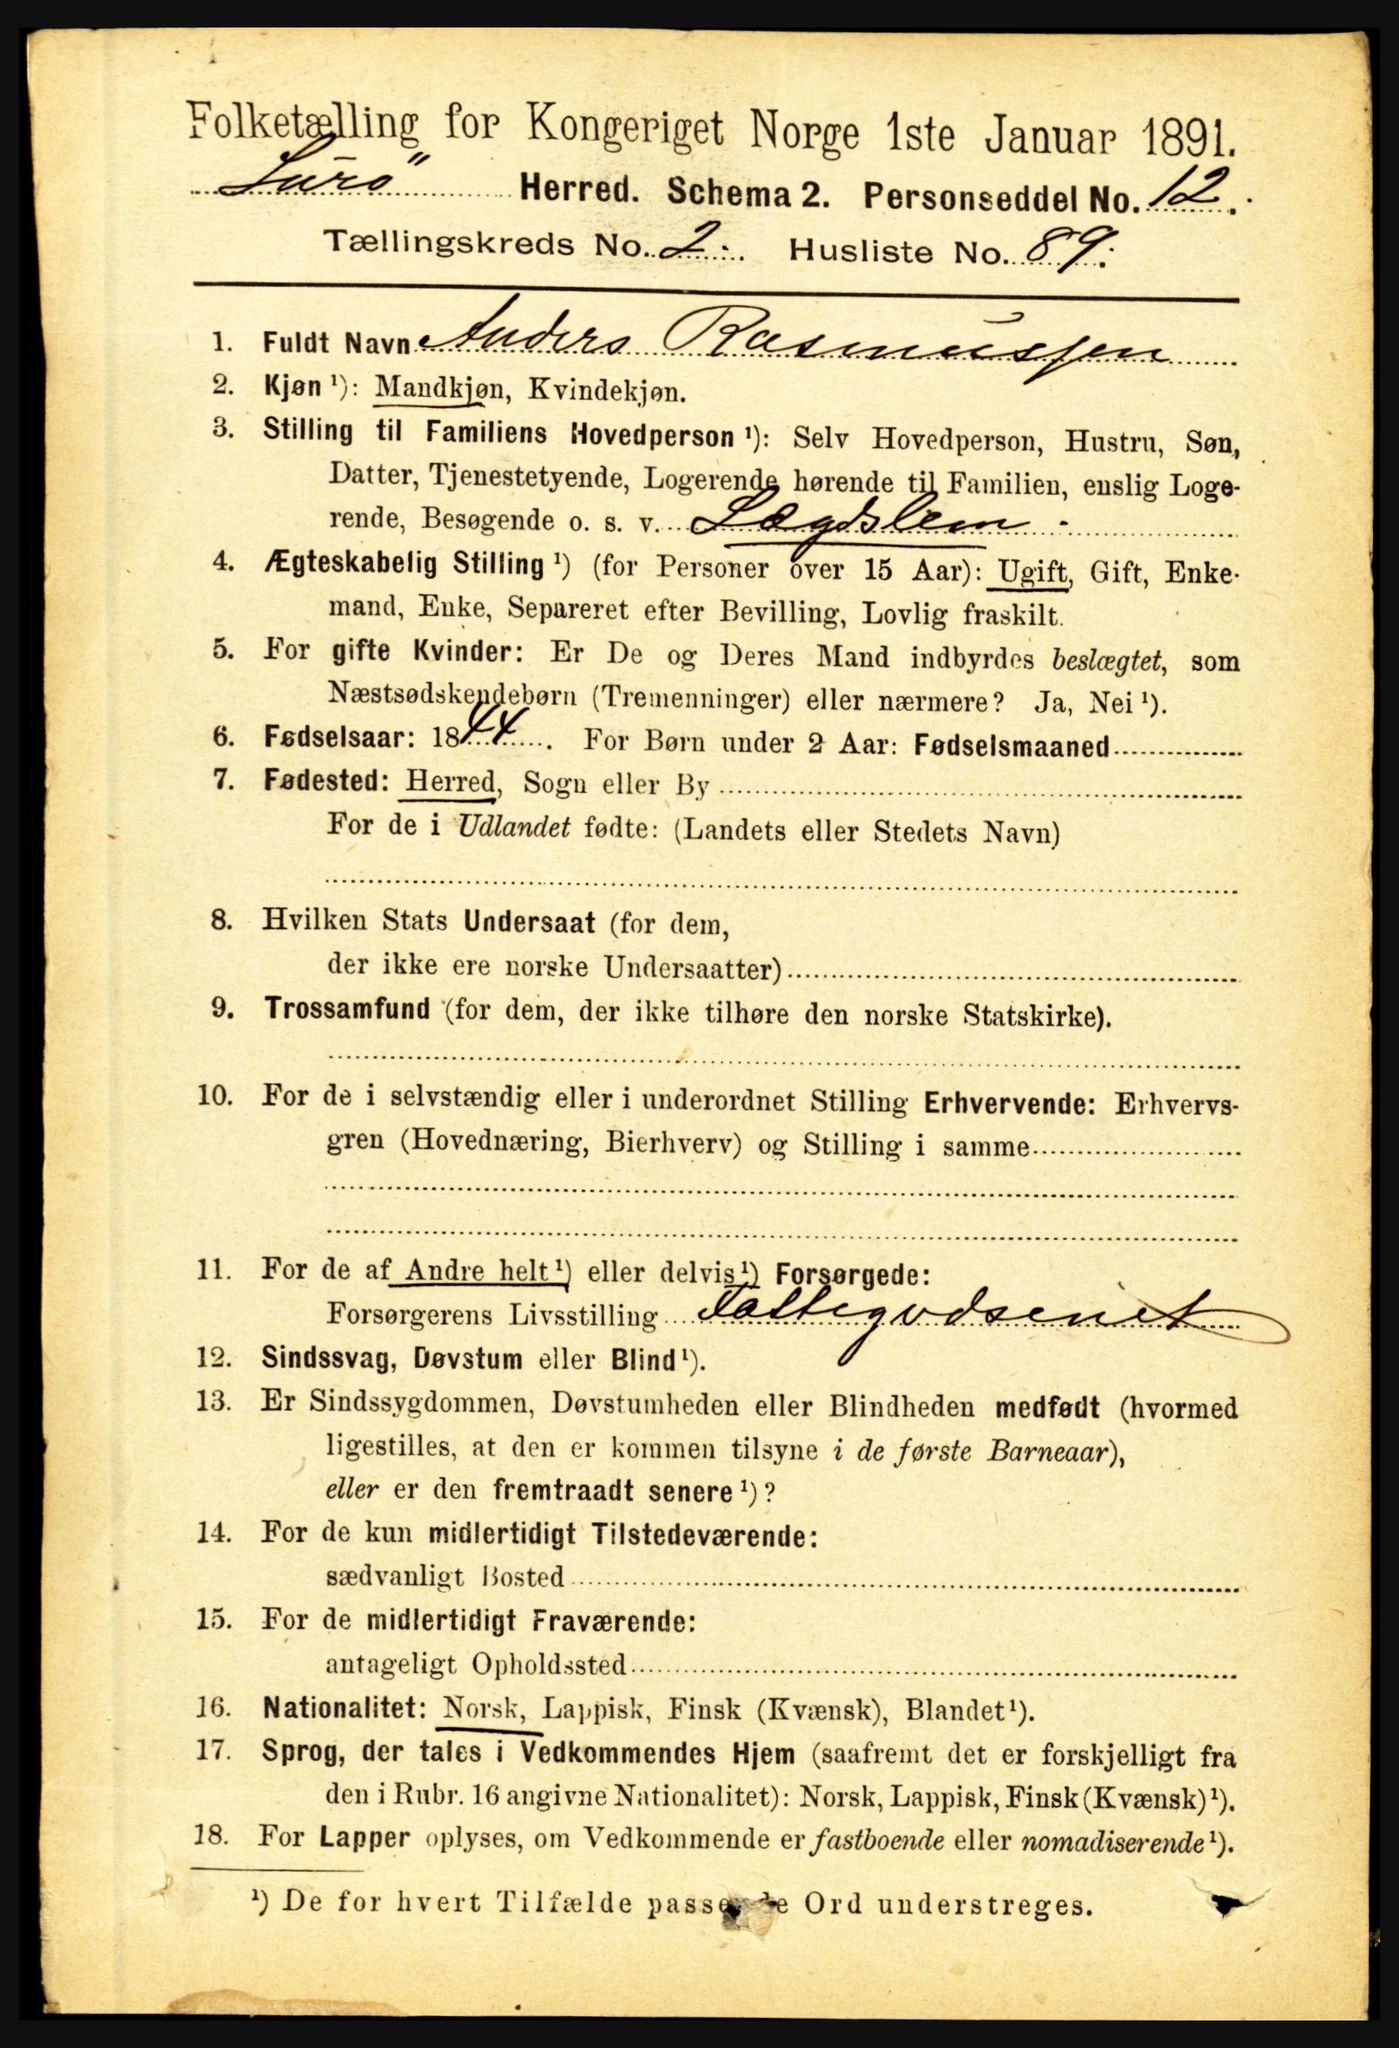 Folketælling for Kongeriget Norge 1ste Januar 1891.
Lurö Herred. Schema 2. Personseddel No. 12.
Tællingskreds No. 2. Husliste No. 89.
1. Fuldt Navn Anders Rasmussen
2. Kjøn¹): Mandkjøn, Kvindekjøn.
3. Stilling til Familiens Hovedperson¹): Selv Hovedperson, Hustru, Søn,
Datter, Tjenestetyende, Logerende hørende til Familien, enslig Loge-
rende, Besøgende o. s. v. Lægdslem.
4. Ægteskabelig Stilling¹) (for Personer over 15 Aar): Ugift, Gift, Enke-
mand, Enke, Separeret efter Bevilling, Lovlig fraskilt.
5. For gifte Kvinder: Er De og Deres Mand indbyrdes beslægtet, som
Næstsødskendebørn (Tremenninger) eller nærmere? Ja, Nei¹).
6. Fødselsaar: 1844. For Børn under 2 Aar: Fødselsmaaned
7. Fødested: Herred, Sogn eller By
For de i Udlandet fødte: (Landets eller Stedets Navn)
8. Hvilken Stats Undersaat (for dem,
der ikke ere norske Undersaatter)
9. Trossamfund (for dem, der ikke tilhøre den norske Statskirke).
10. For de i selvstændig eller i underordnet Stilling Erhvervende: Erhvervs-
gren (Hovednæring, Bierhverv) og Stilling i samme
11. For de af Andre helt¹) eller delvis¹) Forsørgede:
Forsørgerens Livsstilling Fattigvdsenet
12. Sindssvag, Døvstum eller Blind¹).
13. Er Sindssygdommen, Døvstumheden eller Blindheden medfødt (hvormed
ligestilles, at den er kommen tilsyne i de første Barneaar),
eller er den fremtraadt senere¹)?
14. For de kun midlertidigt Tilstedeværende:
sædvanligt Bosted
15. For de midlertidigt Fraværende:
antageligt Opholdssted
16. Nationalitet: Norsk, Lappisk, Finsk (Kvænsk), Blandet¹).
17. Sprog, der tales i Vedkommendes Hjem (saafremt det er forskjelligt fra
den i Rubr. 16 angivne Nationalitet): Norsk, Lappisk, Finsk (Kvænsk)¹).
18. For Lapper oplyses, om Vedkommende er fastboende eller nomadiserende¹).
¹) De for hvert Tilfælde passende Ord understreges.